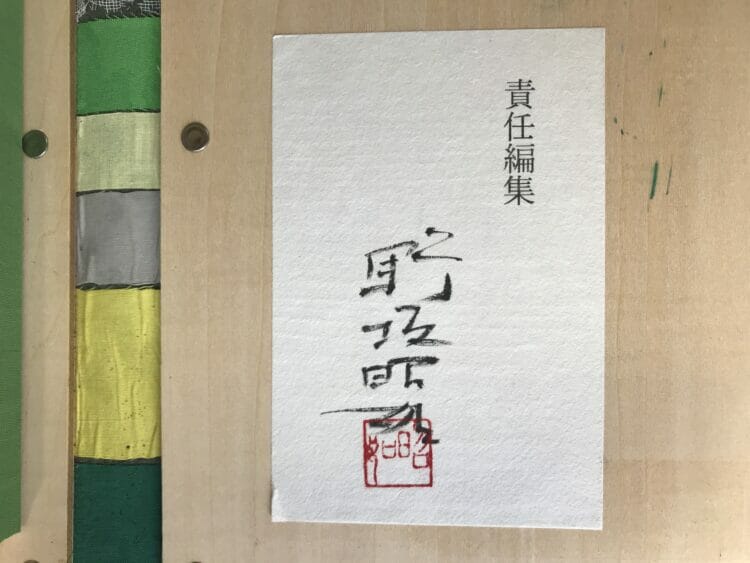 責任編集
野坂昭如
昭如